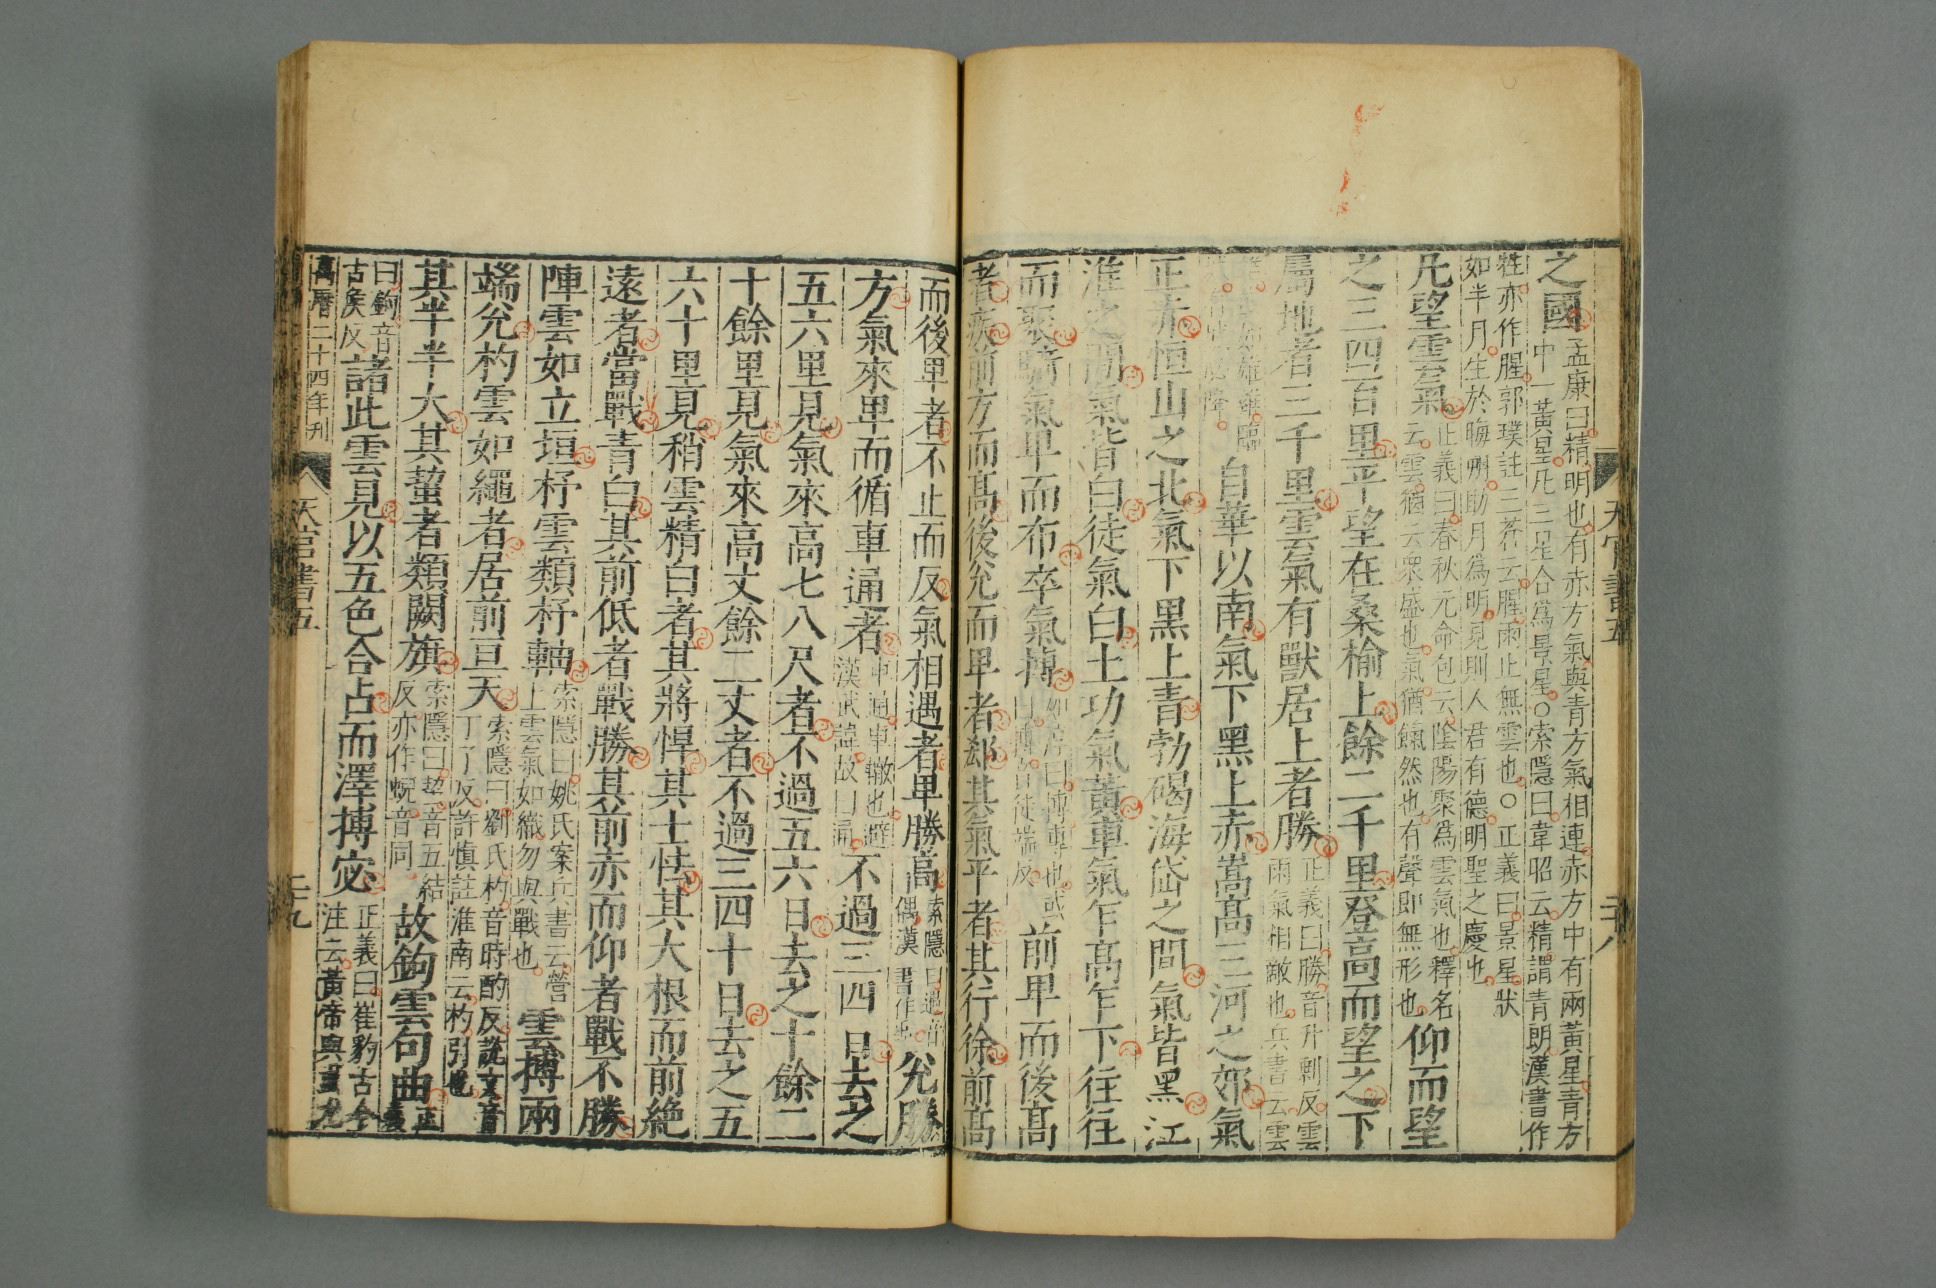 之國孟康曰精明也有赤方氣與青方氣相連赤方中有兩黃星青方
中一黃星凡三星合爲景星○索隱曰韋昭云精謂青朗漢書作
甠亦作腥郭璞註三蒼云腥雨止無雲也○正義曰景星狀
如半月生於晦朔助月爲明見則人君有德明聖之慶也
凡望雲氣正義曰春秋元命包云陰陽聚爲雲氣也釋名
云雲猶云衆盛也氣猶餼然也有聲即無形也仰而望
之三四百里平望在桑榆上餘二千里登高而望之下
屬地者三千里雲氣有獸居上者勝正義曰勝音升剩反雲
雨氣相敵也兵書云雲
自華以南氣下黑上赤嵩高三河之郊氣
正赤恒山之北氣下黑上青勃碣海岱之間氣皆黑江
淮之間氣皆白徒氣白土功氣黃車氣乍高乍下往往
而聚騎氣卑而布卒氣摶
前卑而後高
者疾前方而高後兊而卑者郄其氣平者其行徐前高
而後卑者不止而反氣相遇者卑勝高索隱曰遇音
偶漢書作禺兊勝
方氣來卑而循車通者車通車轍也避
漢武諱故曰通不過三四日去之
五六里見氣來高七八尺者不過五六日去之十餘二
十餘里見氣來高丈餘二丈者不過三四十日去之五
六十里見稍雲精白者其將悍其士怯其大根而前絶
遠者當戰青白其前低者戰勝其前赤而仰者戰不勝
陣雲如立垣杼雲類杼軸索隱曰姚氏案兵書云營
上雲氣如織勿與戰也雲摶兩
端兊杓雲如繩者居前亘天索隱曰劉氏杓音時酌反說文音
丁了反許慎註淮南云杓引也
其半半大其蜺者類闕旗索隱曰蜺音五結
反亦作蜺音同故鉤雲句曲正義
曰鉤音
古矦反諸此雲見以五色合占而澤搏密正義曰崔豹古今
注云黃帝與蚩尤
天官書五
二十八
萬曆二十四年刋
天官書五
二十九